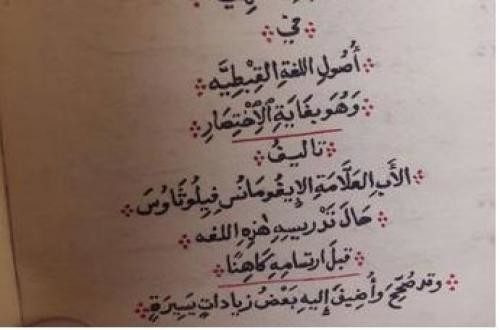 في
أُصُولِ اللغةِ القِبْطِيَّه
وَهُوَ بِغَايَةِ الِاخْتِصَارِ
تاليفُ
الأَبِ العَلَّامَةِ الإِيغُومَانُس فِيلُوثَاوُسَ
حَالَ تَدْرِيسِهِ هٰذِهِ اللغه
قبلَ ارتسامِهِ كَاهِنًا
وقد صُحِّحَ وَأُضِيفَ إِليهِ بَعْضُ زِيادَاتٍ يَسِيرَةٍ